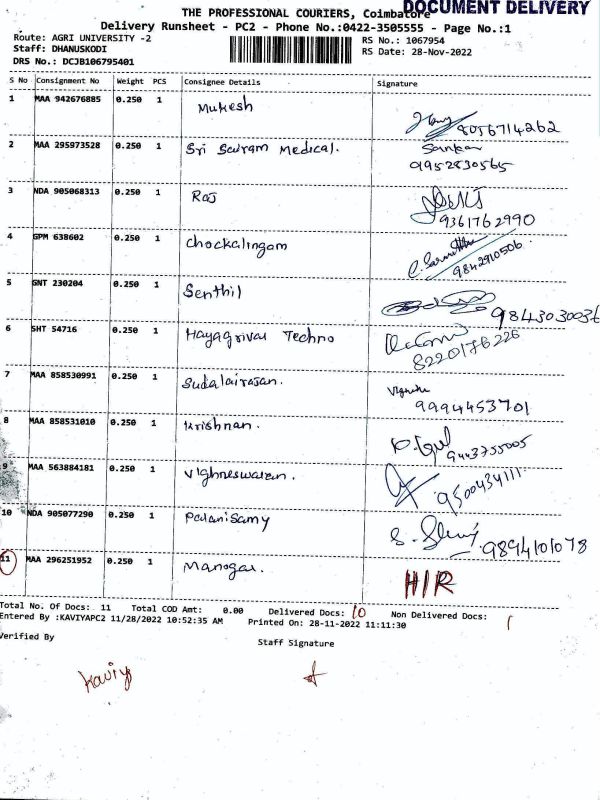 DOCUMENT DELIVERY
THE PROFESSIONAL COURIERS, Coimbatore
Delivery Runsheet - PC2 - Phone No.:0422-3505555 - Page No.:1
Route: AGRI UNIVERSITY -2 RS No.: 1067954
Staff: DHANUSKODI RS Date: 28-Nov-2022
DRS No.: DCJB106795401
S No Consignment No Weight PCS Consignee Details Signature
1 MAA 942676885 0.250 1 Mukesh
8056714262
2 MAA 295973528 0.250 1 Sri Sairam Medical. Sankar
9952830565
3 NDA 905068313 0.250 1 Raj
9361762990
4 GPM 638602 0.250 1 Chockalingam
9842910506.
5 GNT 230204 0.250 1 Senthil
9843030036
6 SHT 54716 0.250 1 Hayagrivar Techno
8220176226
7 MAA 858530991 0.250 1 Sudalairajan.
9994453701
8 MAA 858531010 0.250 1 Krishnan.
9443755005
9 MAA 563884181 0.250 1 Vighneswaran.
9500434111
10 NDA 905077290 0.250 1 Palanisamy
9894101078
11 MAA 296251952 0.250 1 Manogar. HIR
Total No. Of Docs: 11 Total COD Amt: 0.00 Delivered Docs: 10 Non Delivered Docs: 1
Entered By :KAVIYAPC2 11/28/2022 10:52:35 AM Printed On: 28-11-2022 11:11:30
Verified By Staff Signature
Kaviya